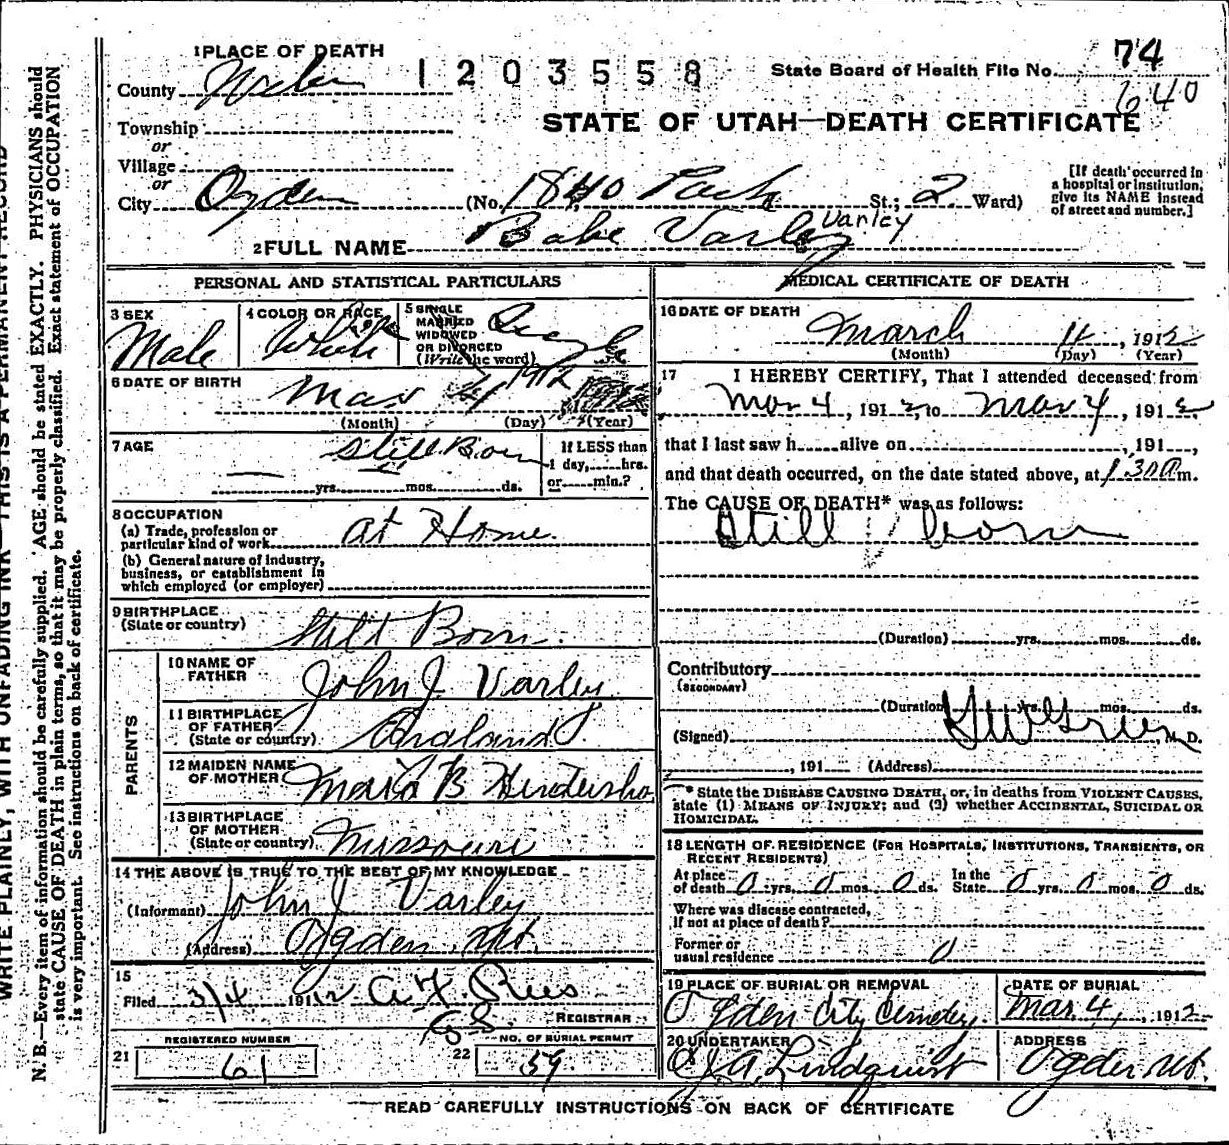 WRITE PLAINLY, WITH UNFADING INK—THIS IS A PERMANENT RECORD
N. B.—Every item of information should be carefully supplied. AGE should be stated EXACTLY. PHYSICIANS should
state CAUSE OF DEATH in plain terms, so that it may be properly classified. Exact statement of OCCUPATION
is very important. See instructions on back of certificate.
1 PLACE OF DEATH
County Weber
1203558
State Board of Health File No. 74
640
STATE OF UTAH—DEATH CERTIFICATE
Township
or
Village
or
City Ogden (No. 1840 St.; 2 Ward)
[If death occurred in
a hospital or institution,
give its NAME instead
of street and number.]
2 FULL NAME Babe Varley Varley
PERSONAL AND STATISTICAL PARTICULARS
3 SEX
Male
4 COLOR OR RACE
White
5 SINGLE
MARRIED
WIDOWED
OR DIVORCED
(Write the word)
Single
6 DATE OF BIRTH
Mar 4 1912
(Month) (Day) (Year)
7 AGE
Still Born
yrs. mos. ds.
If LESS than
1 day, hrs.
or min.?
8 OCCUPATION
(a) Trade, profession or
particular kind of work At Home
(b) General nature of industry,
business, or establishment in
which employed (or employer)
9 BIRTHPLACE
(State or country) Still Born
PARENTS
10 NAME OF
FATHER John J Varley
11 BIRTHPLACE
OF FATHER
(State or country) England
12 MAIDEN NAME
OF MOTHER Maria B
13 BIRTHPLACE
OF MOTHER
(State or country) Missouri
14 THE ABOVE IS TRUE TO THE BEST OF MY KNOWLEDGE
(Informant) John J Varley
(Address) Ogden Ut.
15
Filed 3/4 1912 Rees
REGISTRAR
21
REGISTERED NUMBER
61
22
NO. OF BURIAL PERMIT
59
MEDICAL CERTIFICATE OF DEATH
16 DATE OF DEATH
March 4, 1912
(Month) (Day) (Year)
17 I HEREBY CERTIFY, That I attended deceased from
Mar 4, 1912 to Mar 4, 1912
that I last saw h alive on , 191 ,
and that death occurred, on the date stated above, at 1:30 a m.
The CAUSE OF DEATH* was as follows:
Still born
(Duration) yrs. mos. ds.
Contributory
(SECONDARY)
(Duration) yrs. mos. ds.
(Signed) M. D.
, 191 (Address)
* State the DISEASE CAUSING DEATH, or, in deaths from VIOLENT CAUSES,
state (1) MEANS OF INJURY; and (2) whether ACCIDENTAL, SUICIDAL OR
HOMICIDAL.
18 LENGTH OF RESIDENCE (FOR HOSPITALS, INSTITUTIONS, TRANSIENTS, OR
RECENT RESIDENTS)
At place
of death 0 yrs. 0 mos. 0 ds. In the
State 0 yrs. 0 mos. 0 ds.
Where was disease contracted,
If not at place of death?
Former or
usual residence 0
19 PLACE OF BURIAL OR REMOVAL
Ogden City Cemetery
DATE OF BURIAL
Mar 4, 1912
20 UNDERTAKER
J A Lindquist
ADDRESS
Ogden Ut.
READ CAREFULLY INSTRUCTIONS ON BACK OF CERTIFICATE